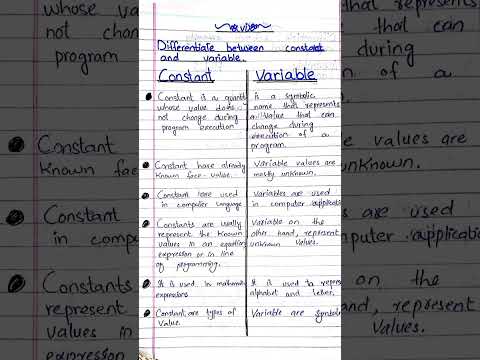 Differentiate between constant
and variable.
Constant
Constant is a quantity
whose value does
not change during
program execution
Constant have already
known face-value.
Constant are used
in computer language
Constants are usually
represent the known
values in an equation
expression or in line
of programming.
It is used in mathematical
expressions
Constant are types of
value.
Variable
is a symbolic
name that represents
a value that can
change during
execution of a
program.
Variable values are
mostly unknown.
Variables are used
in computer application
Variable on the
other hand, represent
unknown values.
It is used to
alphabet and letter.
Variable are
whose value
not change
program
Constant
known face
Constant
in compu
Constants
represent
values in
expression
that represents
that can
during
of a
values are
unknown.
are used
computer application
on the
hand, represent
values.